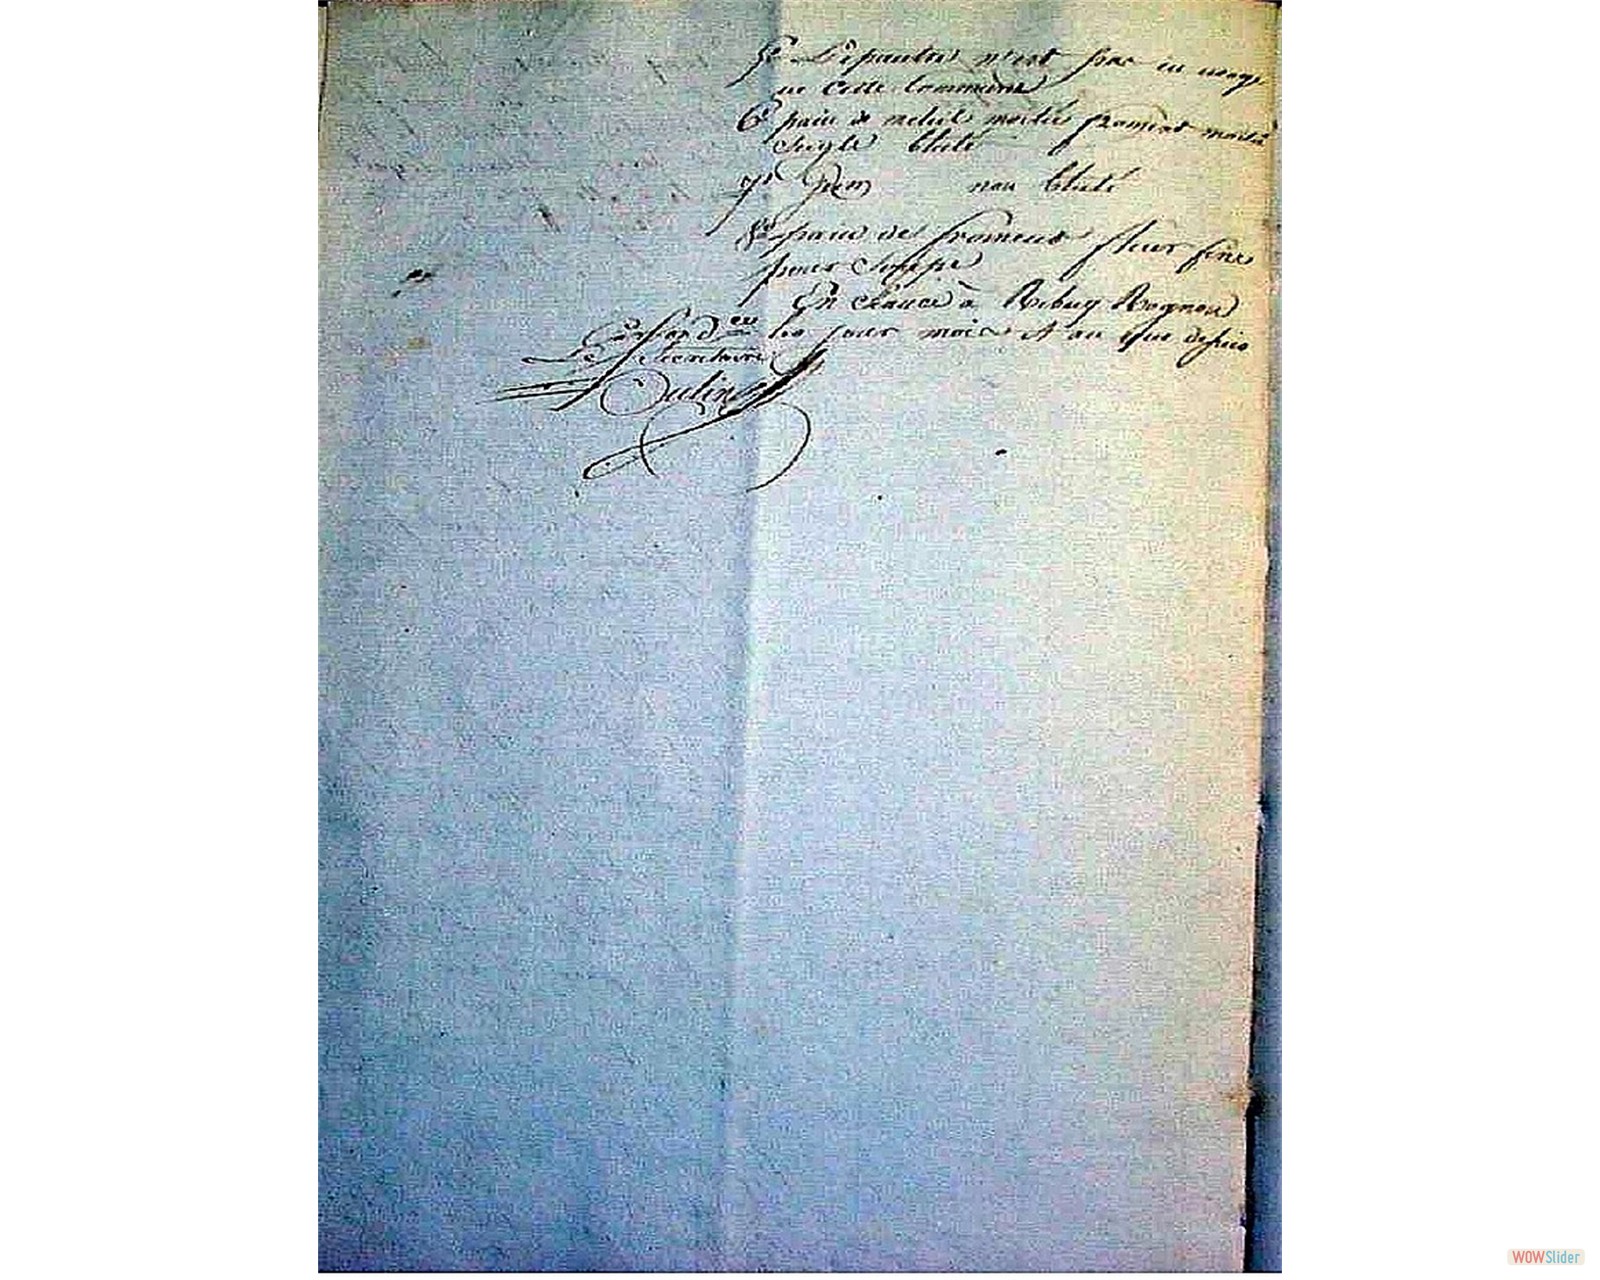 5° L'Epautre n'est pas en usage
en cette Commune
6° pain de meteil moitié froment moitié
Seigle bluté
7° Idem non bluté
8° pain de froment fleur fine
pour Soupe
En Séance à Rebecq Rognon
les jour mois et an que dessus
Par ord ce
Le Secretaire
WOWSlider